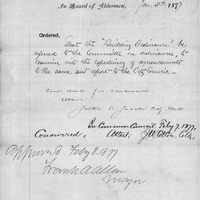 In Board of Aldermen, Jan. 2nd 1877
Ordered,
That the "Building Ordinance" be
referred to the Committee on Ordinances, to
examine into the expediency of amendments
to the same and report to the City Council.
Sent down for concurrence.
City Clerk
In Common Council, Feby 7, 1877.
Concurred, Attest. Clk.
Approved Feby 8. 1877
Frank A Allen
Mayor